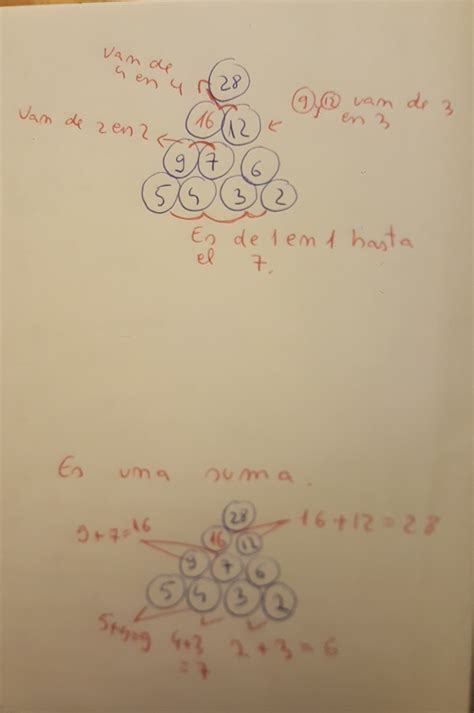 van de
4 en 4
28
16 12
9, 12 van de 3
en 3
van de 2 en 2
9 7 6
5 4 3 2
Es de 1 en 1 hasta
el 7.
Es una suma.
28
16+12=28
9+7=16
16 12
9 7 6
5 4 3 2
5+4=9
4+3
=7
2+3=6